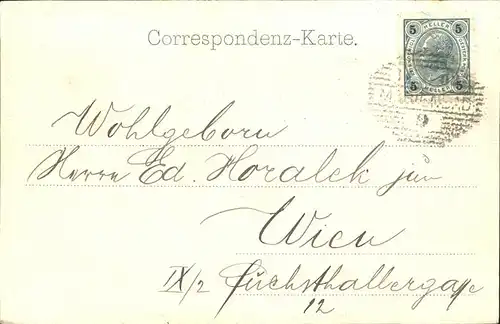 Correspondenz-Karte.
5 HELLER 5
5 HELLER 5
9
Wohlgeborn
Herrn Ed. Horalek jun
Wien
IX/2 Fuchsthallergasse
12